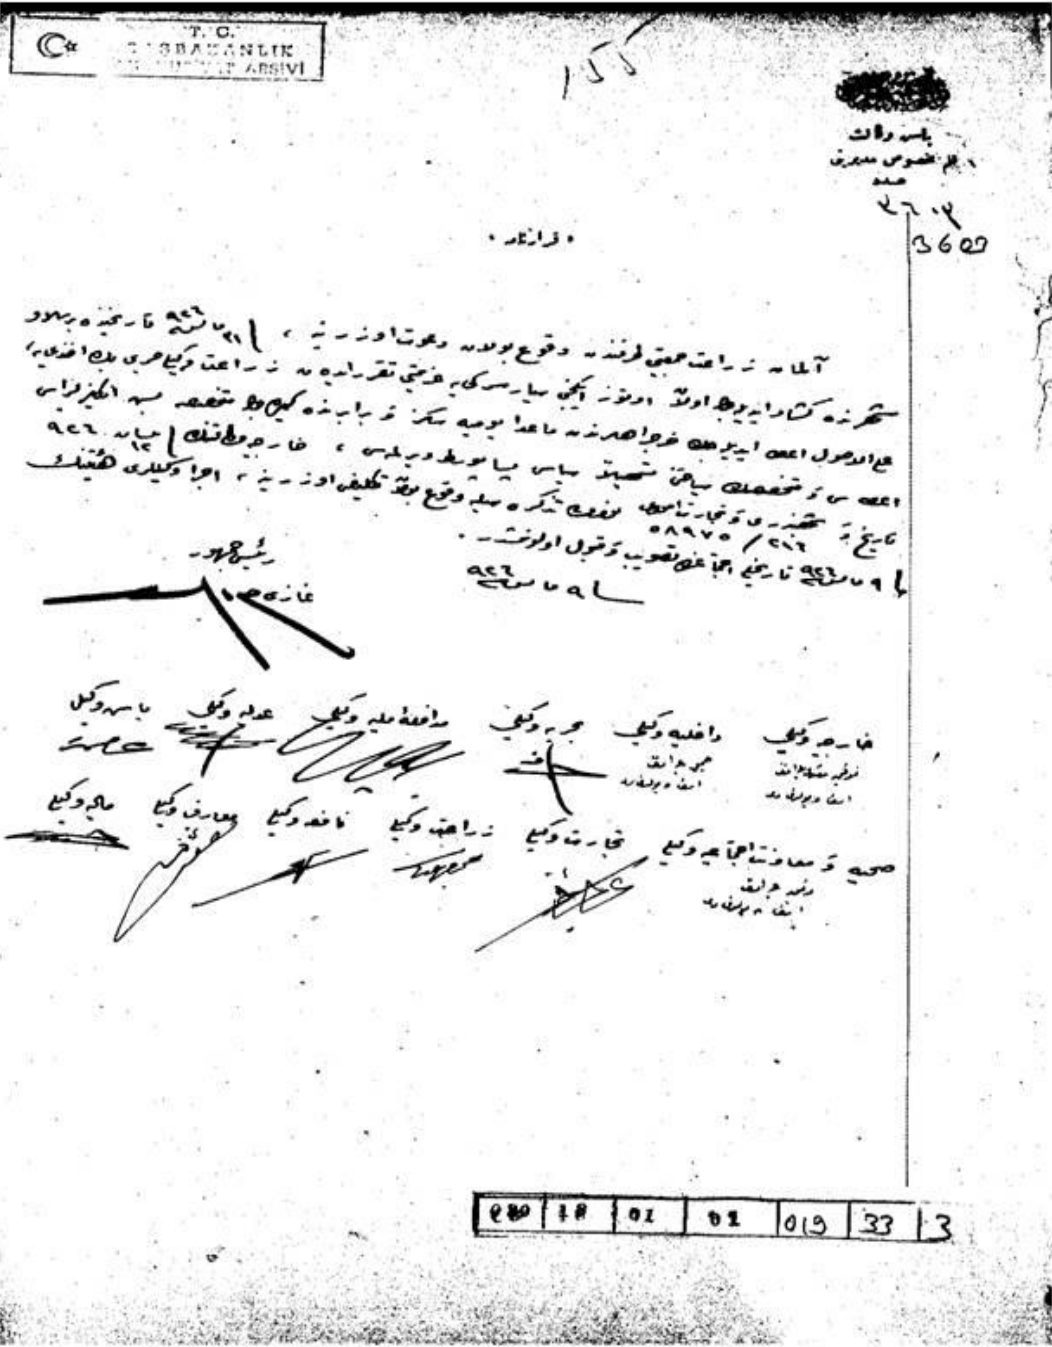 T. C.
BAŞBAKANLIK
ARŞİVİ
١٥٥
باش وكالت
قلم مخصوص مديريتى
عدد
٣٦٠٣
3603
قرارنامه
آلمان زراعت جمعيتى طرفندن وقوع بولان دعوت اوزرينه ، ٣١ مايس ٩٢٦ تاريخنده برسلاو
شهرنده كشاد ايديله جك اولان اوتوز ايكنجى سيار سركى يه عزيمتى تقرر ايدن زراعت وكيلى صبرى بك افندى يه
على الاصول اعطا ايديله جك خرجراهلرندن ماعدا يوميه سكز و برابرنده كيده جك متخصصه بش انكليز ليراسى
اعطاسى و متخصصك سياحتى تسهيلاً سياسى پساپورط ويريلمسى ، خارجيه وكالتنك ١٢ نيسان ٩٢٦
تاريخ و نومرولى تذكره سيله وقوع بولان تكليفى اوزرينه ، اجرا وكيللرى هيئتنك
٥٨٩٧٥ / ٢١٦
٩ مايس ٩٢٦ تاريخلى اجتماعنده تصويب و قبول اولونمشدر .
٩ مايس ٩٢٦
رئيس جمهور
غازى م
باش وكيل
عدليه وكيلى
مدافعۀ مليه وكيلى
بحريه وكيلى
داخليه وكيلى
خارجيه وكيلى
عصمت
ماليه وكيلى
معارف وكيلى
نافعه وكيلى
زراعت وكيلى
تجارت وكيلى
صحيه و معاونت اجتماعيه وكيلى
030 18 01 01 019 33 3